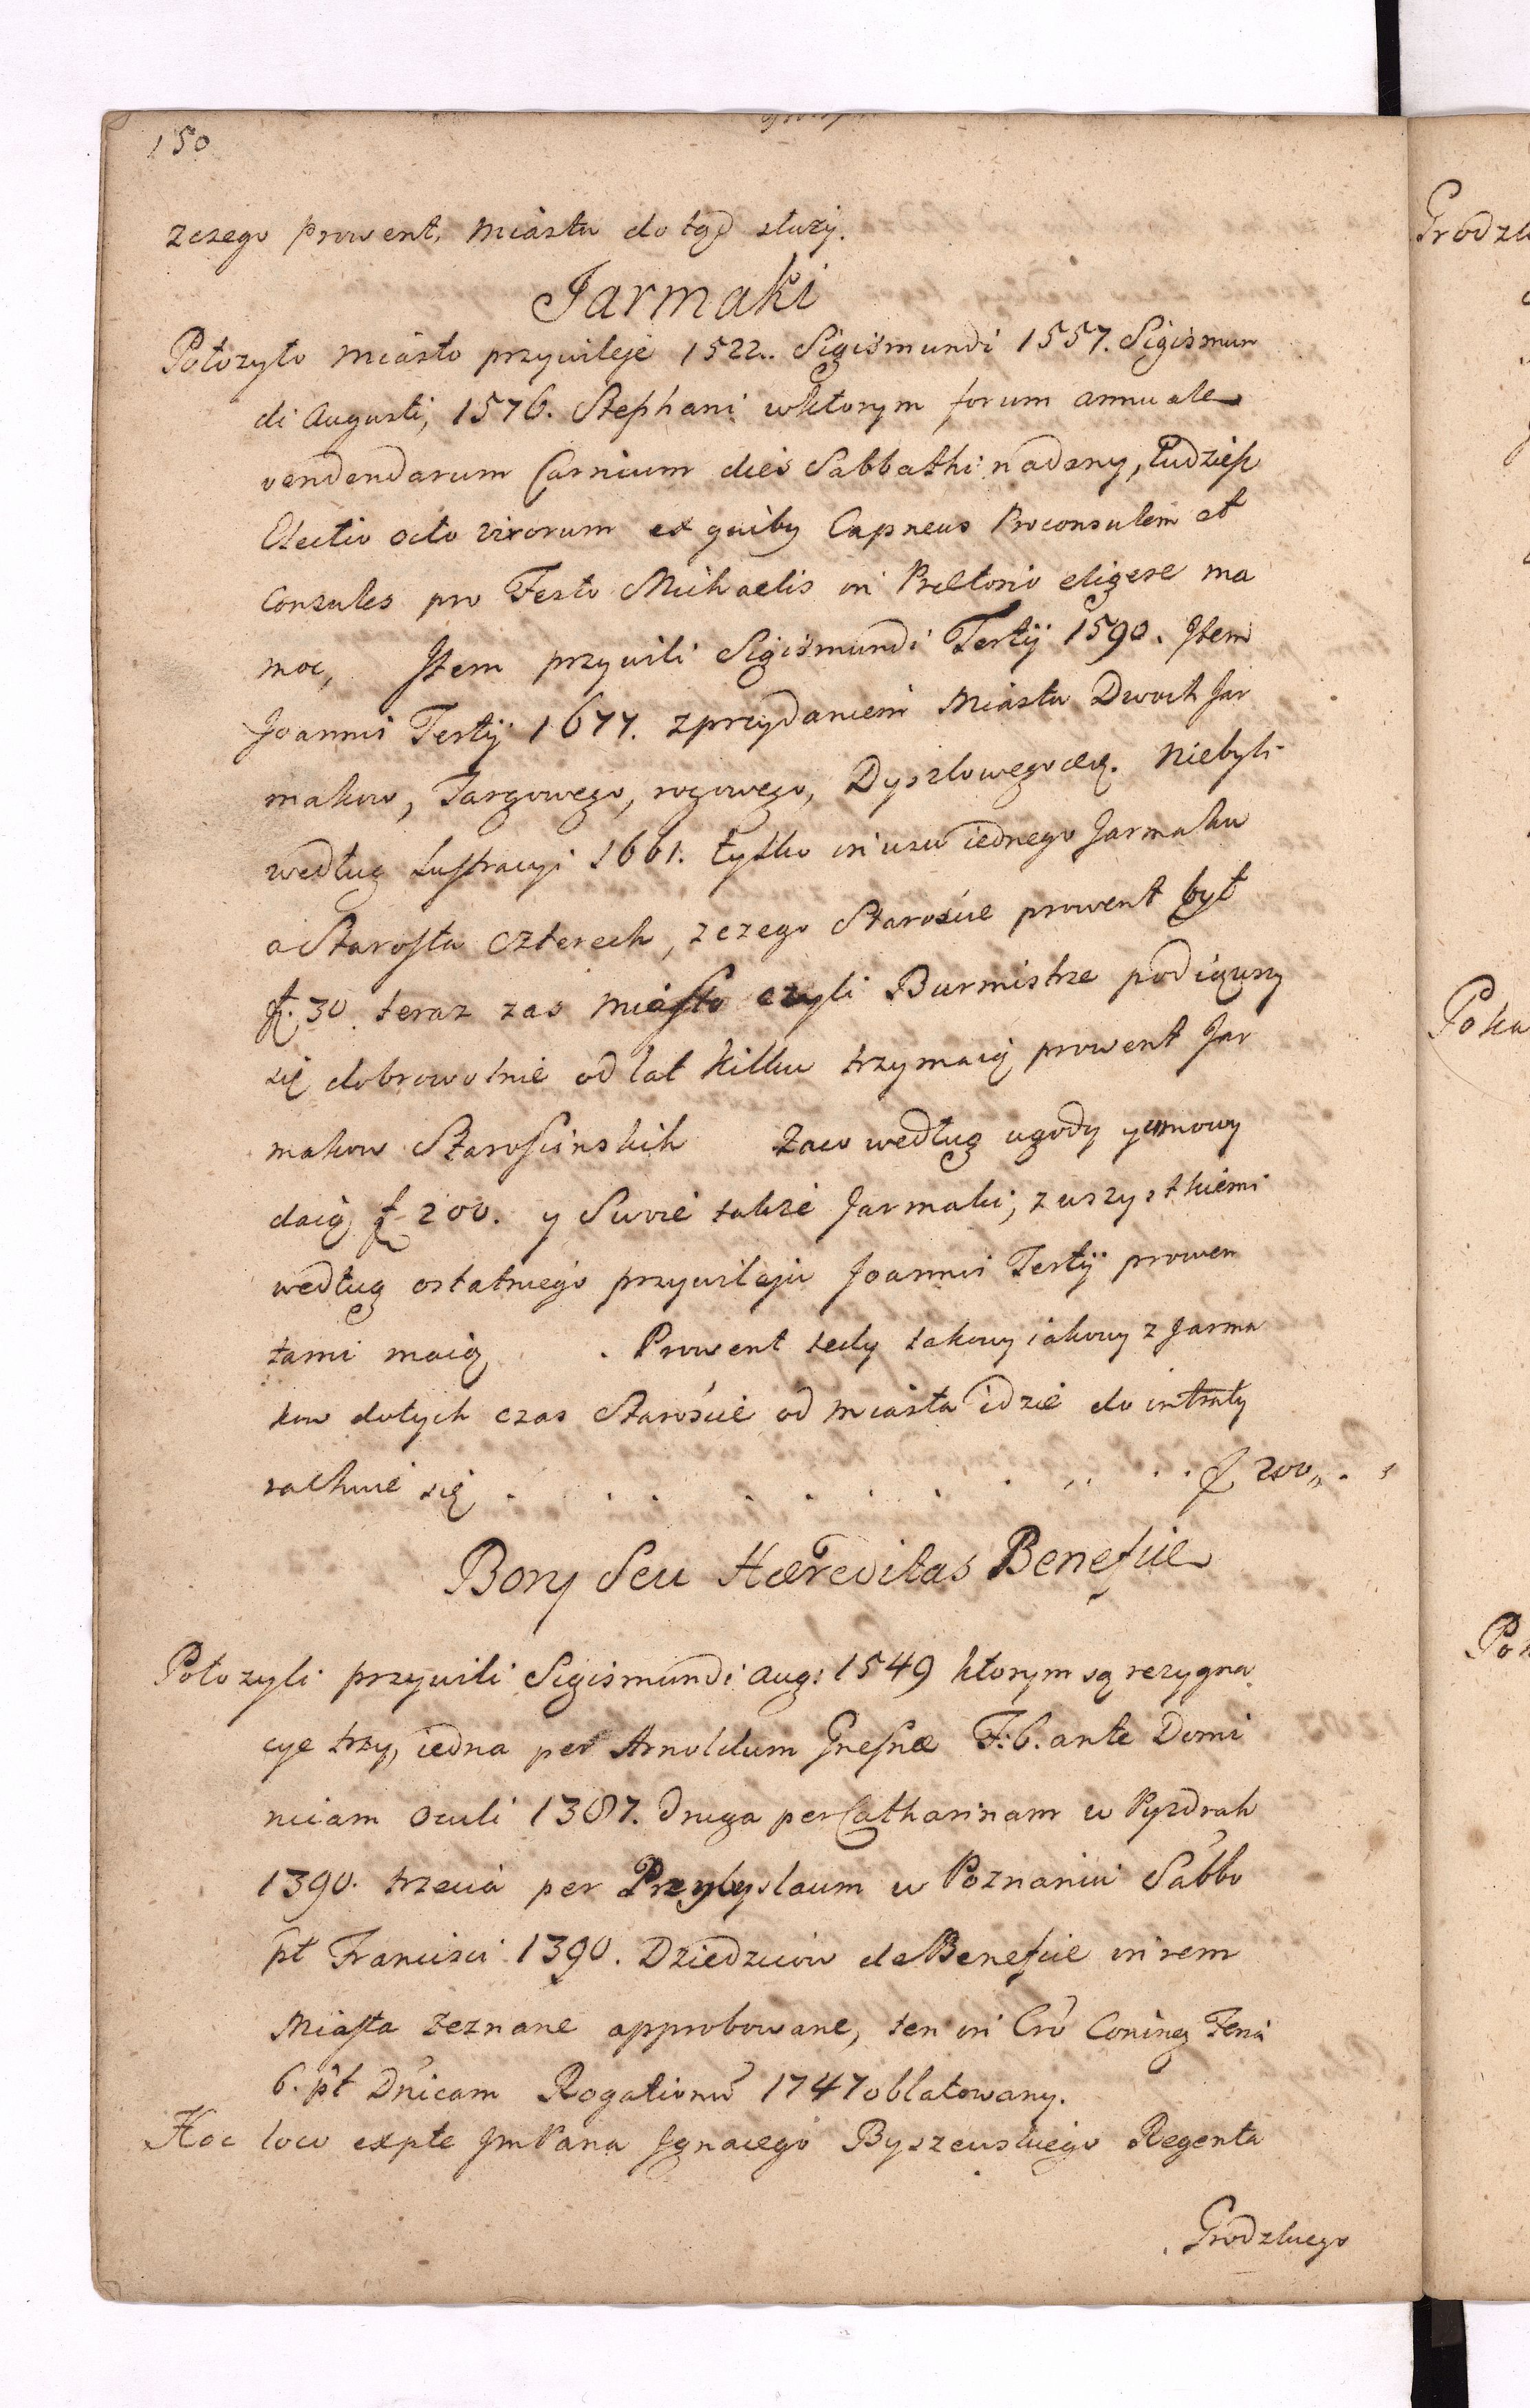 150
zczego prowent, miastu do tąd służy.
Jarmaki
Położyło miasto przywileje 1522.. Sigismundi 1557. Sigismun
di Augusti, 1576. Stephani wktorym forum annuale
vendendarum Carnium diei Sabbathi nadany, tudzież
Electio octo virorum ex quiby Capneus Proconsulem et
Consules pro Festo Michaelis in Pretorio eligere ma
moc, Item przywili Sigismundi Tertij 1590. Item
Joannis Tertij 1677. zprzydaniem Miastu Dwoch Jar
makow, Targowego, rogowego, Dyszlowego etc. Niebyli
według Lustracyi 1661. tylko in usu iednego Jarmaku
a Starosta czterech, zczego Staroście prowent był
f. 30 teraz zas Miasto czyli Burmistrze podiąwszy
się dobrowolnie od lat kilku trzymaią prowent Jar
makow Starościnskich Zaco według ugody y umowy
daią f 200. y Swoie także Jarmaki, zwszystkiemi
według ostatniego przywileju Joannis Tertij prowen
tami maią . Prowent tedy takowy iakowy z Jarma
kow dotych czas Staroście od Miasta idzie do intraty
rachuie się . . . . . . . . . . . f 200,, . ,
Bory Seu Hæreditas Beneficie
Położyli przywili Sigismundi Aug: 1549 ktorym są rezygna
cye trzy, iedna per Arnoldum Gnesnæ F: 6. ante Domi
nicam Oculi 1387. druga per Catharinam w Pyzdrah
1390. trzecia per Przybyslaum w Poznaniu Sabbo
pt Francisci 1390. Dziedzicow de Beneficie in rem
Miasta zeznane approbowane, ten in Cro Coninen Feria
6. pt Dnicam Rogationu 1747 oblatowany.
Hoc loco expte JmPana Jgnacego Byszewskiego Regenta
Grodzkiego
Grodzk
Poka
Po